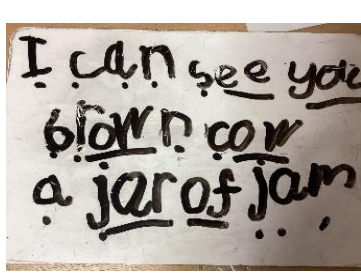 I can see you
brown cow
a jar of jam